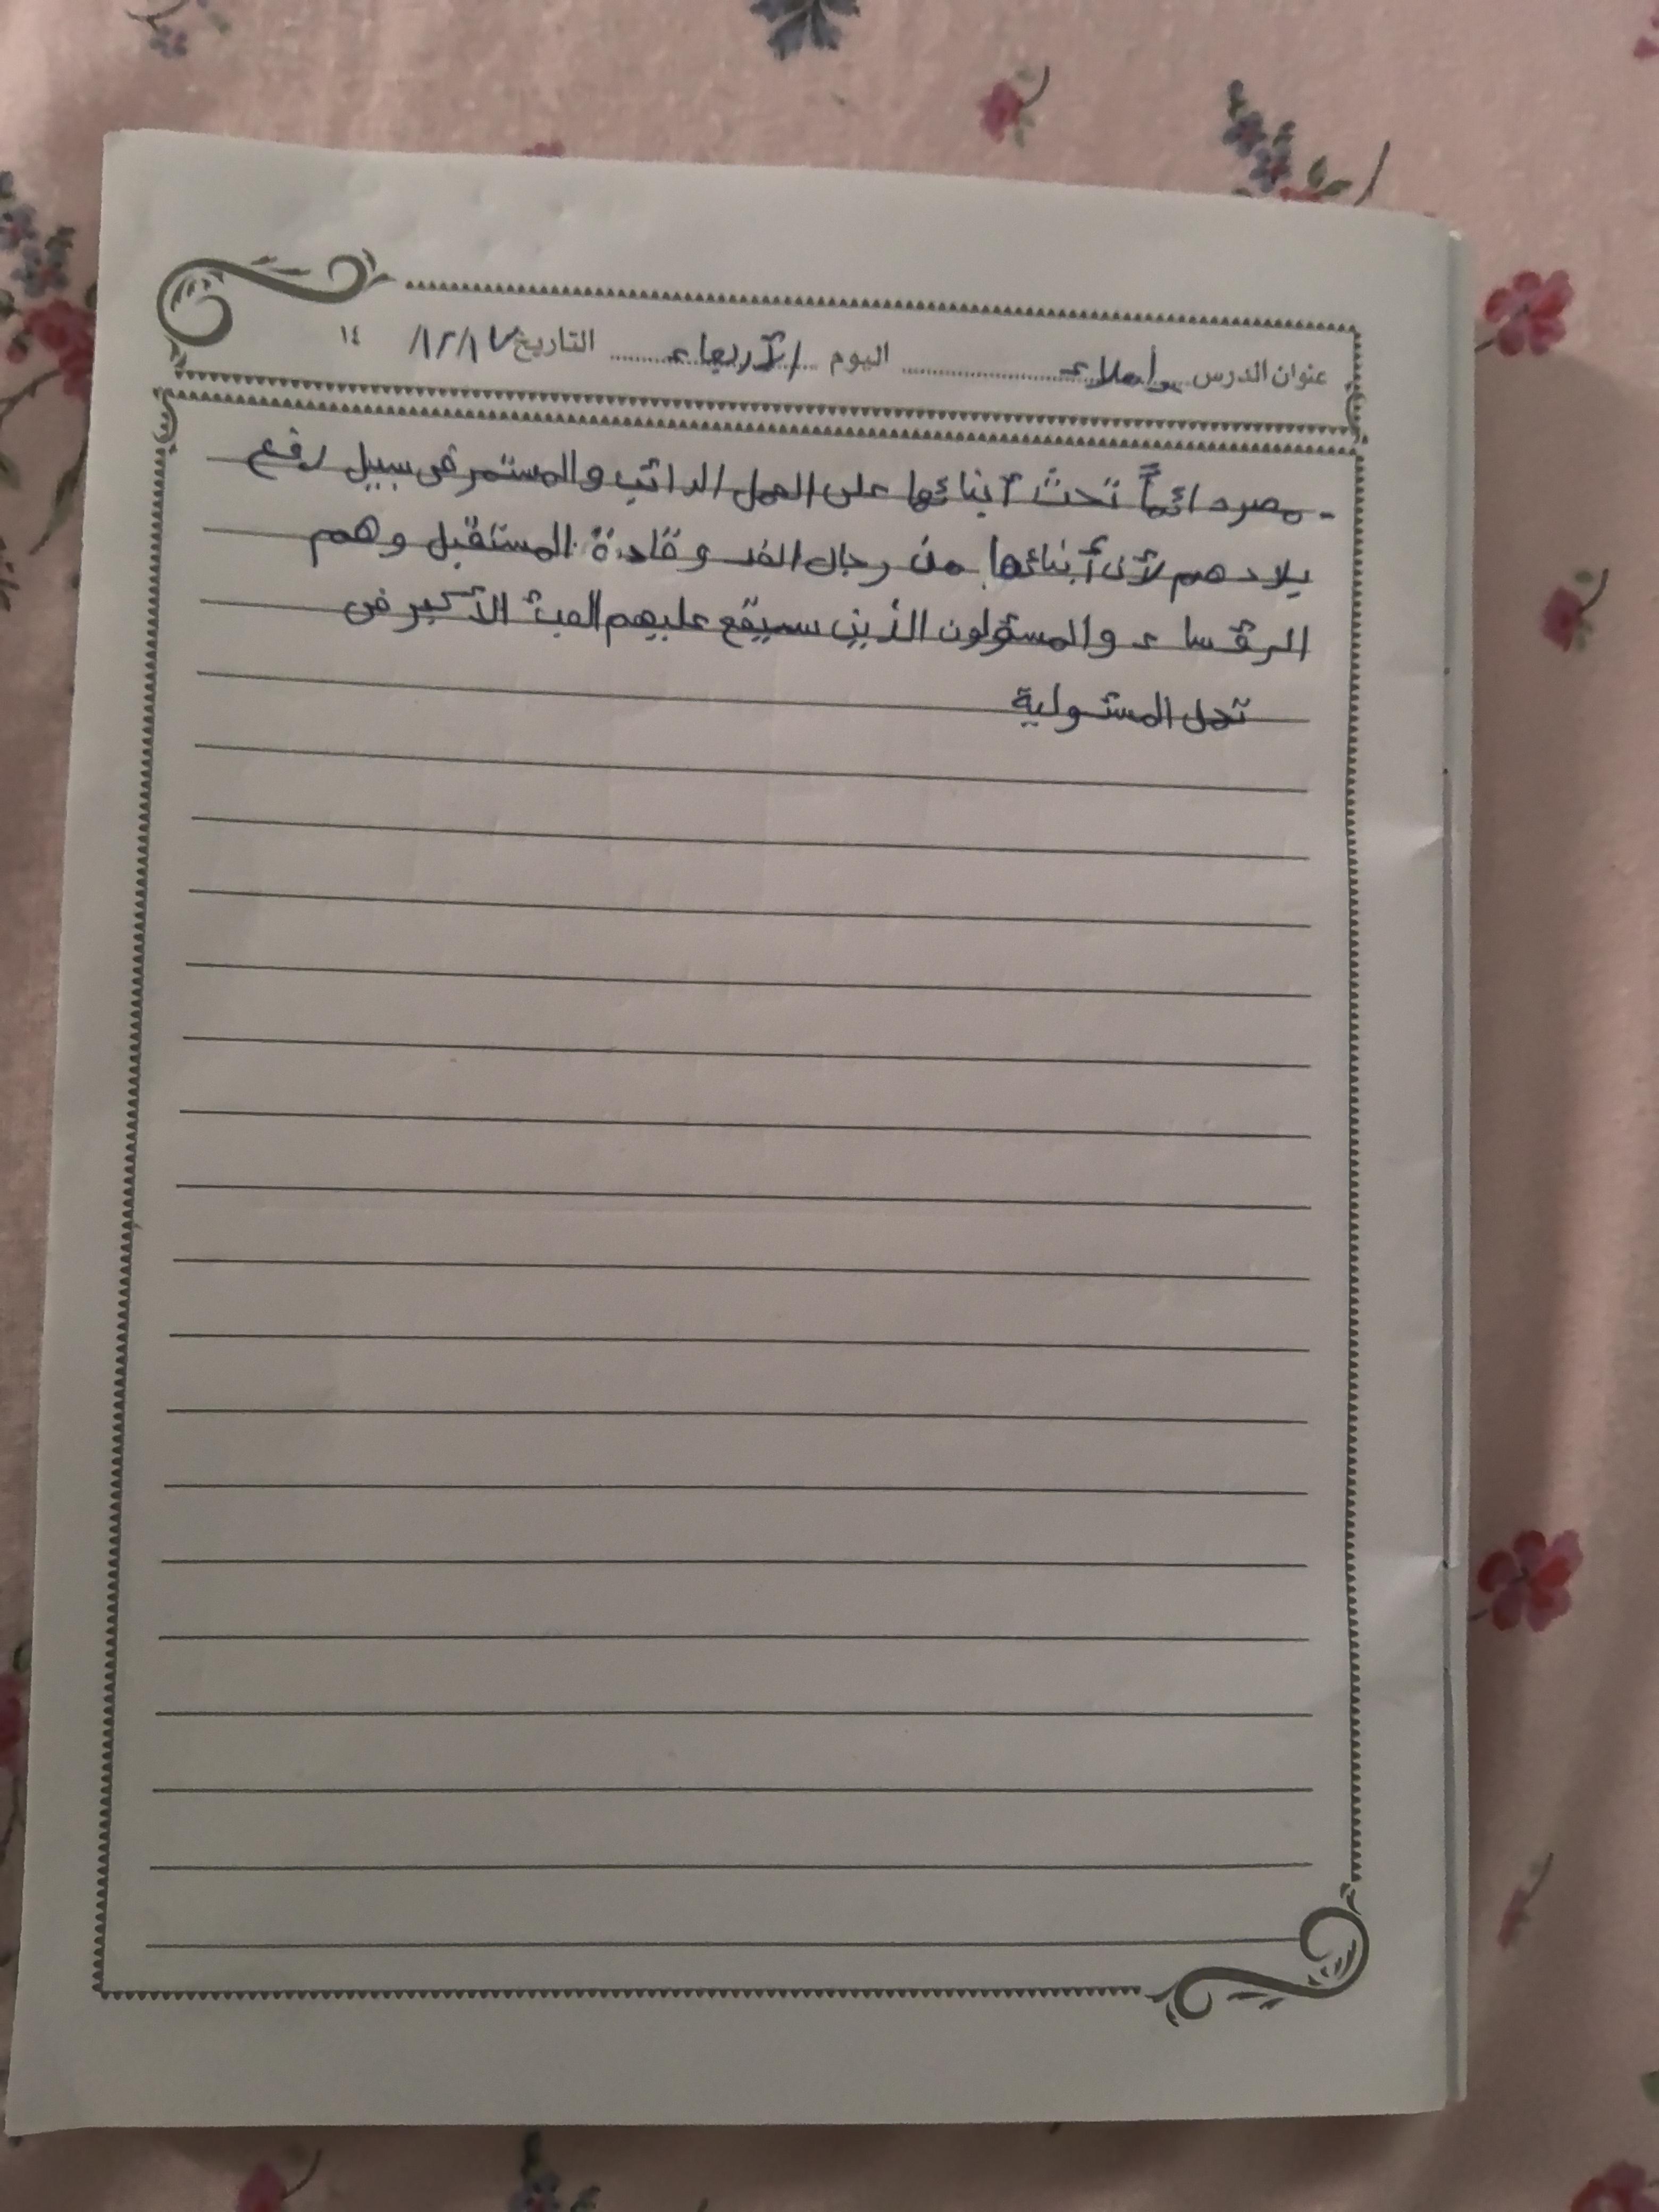 عنوان الدرس أملاء اليوم الأربعاء التاريخ ١٧/١٢/ ١٤
- مصر دائماً تحث أبنائها على العمل الدائب والمستمر فى سبيل رفع
بلادهم لأن أبنائها من رجال الغد وقادة المستقبل وهم
الرؤساء والمسؤلون الذين سيقع عليهم العبئ الأكبر فى
تحمل المسئولية